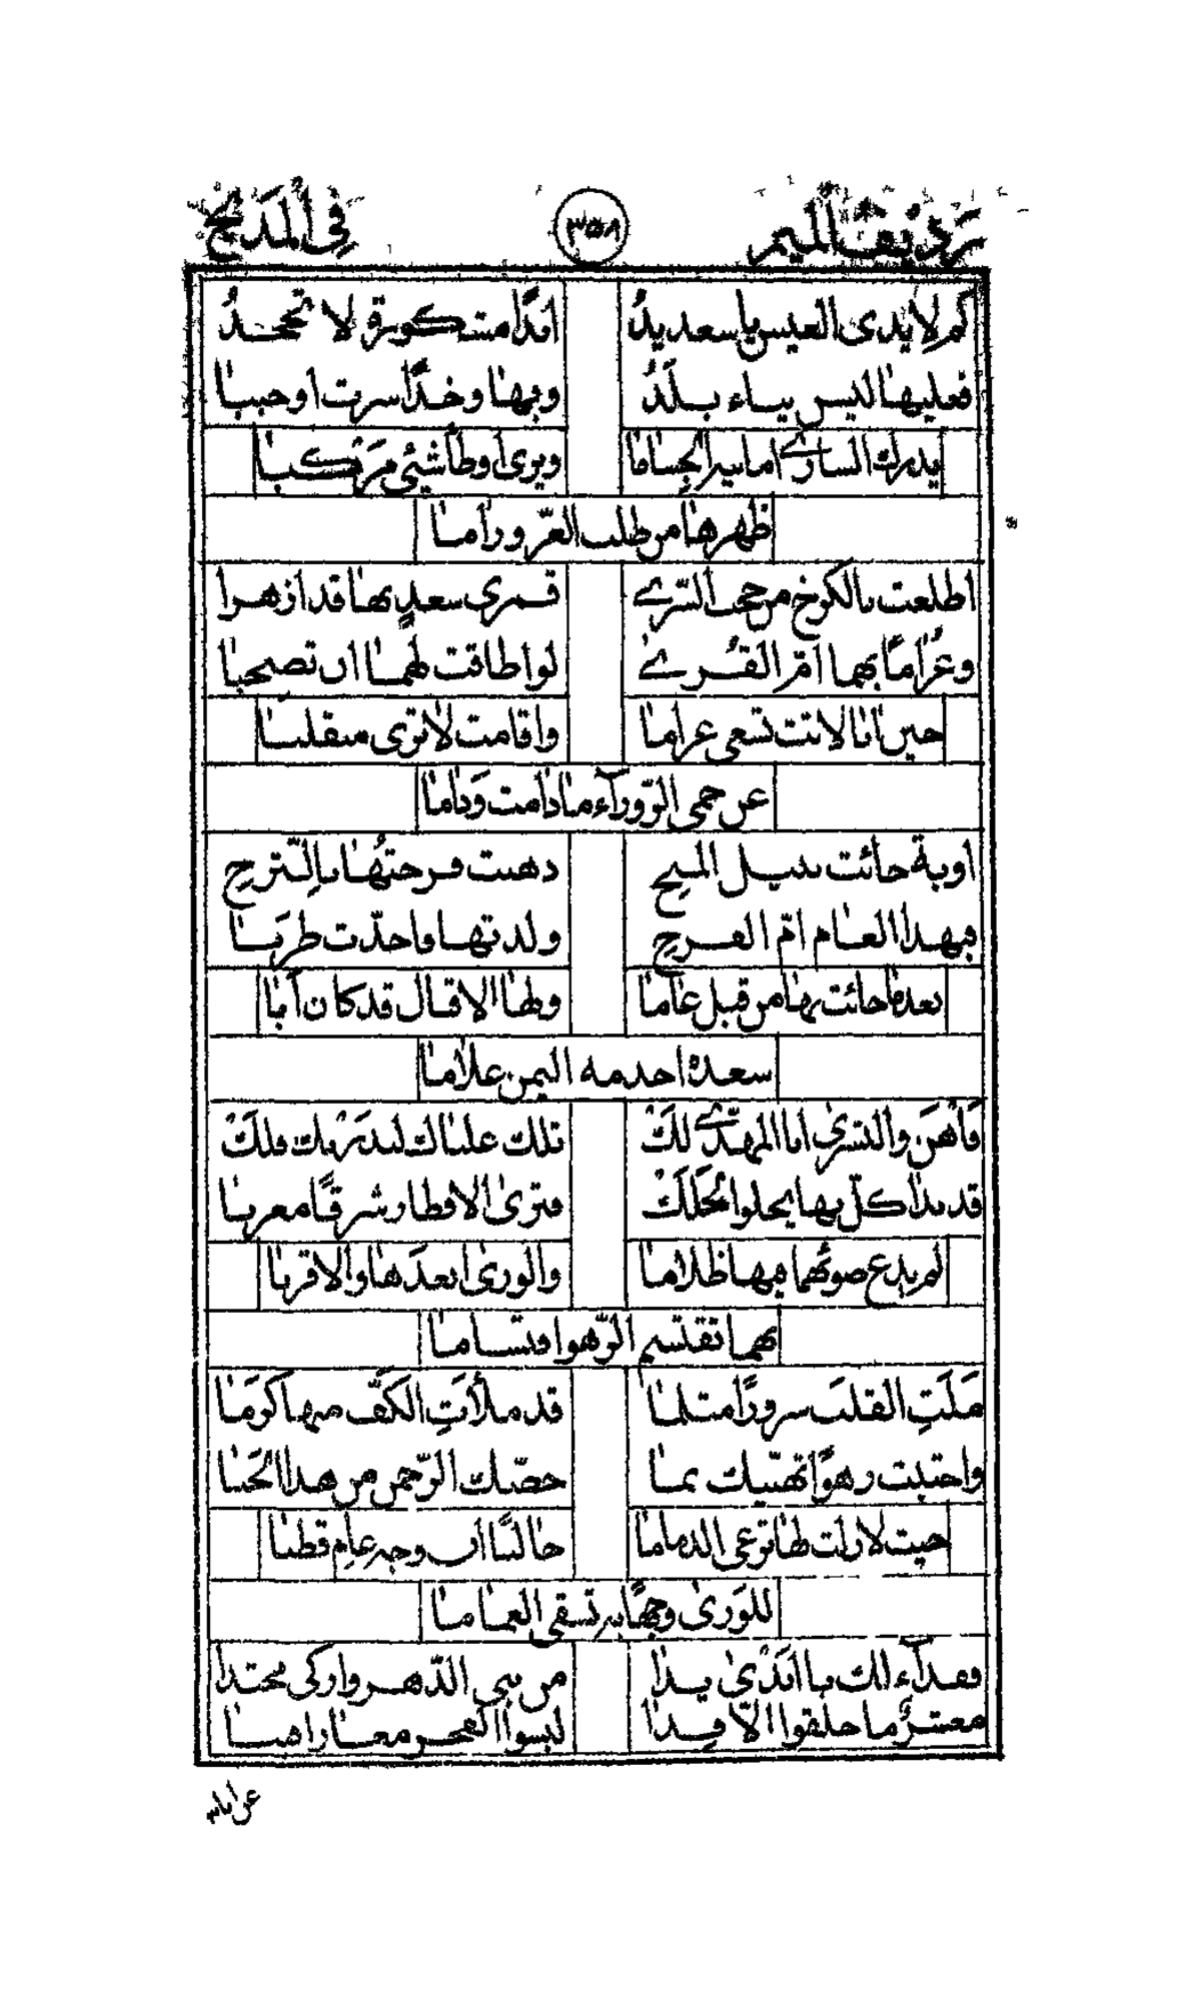 رديف الميم ٣٥٨ في المديح
كم لايدى العيس يا سعد يدُ ابدًا مشكورة لا تجحدُ
فعليها ليس يناء بلدُ وبها وخدًا سرت او حببا
يدرك الساري اماسير الجساما ويرى اوطأ شيئ مركبا
ظهرها من طلب العزّ وراما
اطلعت بالكرخ من حجب السّرى قمري سعدٍ بها قد ازهرا
وغرامًا بهما امّ القرى لو اطاقت لهما ان تصحبا
حين انا لاتت تسعى غراما واقامت لا ترى منقلبا
عن حمى الزّوراء ما دامت وداما
اوبة جائت بنيل المنح ذهبت فرحتها بالترح
فبهذا العام امّ الفرح ولدتها فاجدّت طربا
بعد ما جائت بها من قبل عاما ولها الاقبال قد كان أبا
سعده احدمه اليمن غلاما
فأهنَ والبشرى ابا المهدّي لك تلك علياك لبدريك فلك
قد بدا كلّ بها يجلو الحلك فترى الاقطار شرقًا مغربا
لم يدع ضوئهما فيها ظلاما والورى ابعدها والاقربا
بهما تقتسم الزّهو اقتساما
مَلَتِ القلب سرورًا مثلما قد ملأتِ الكفّ منها كرما
واجتبت زهوًا تهنّيك بما خصّك الرّحمن من هذا الحبا
حيث لا زلت لها ترعى الذماما جالبًا ان وجه عام قطبا
للورى وجهًا به تسقى الغماما
ففدآء لك يا اندى يدا من بني الدّهر وازكى محتدا
معشر ما خلقوا الّا فدا لبسوا الفخر معارا فبا